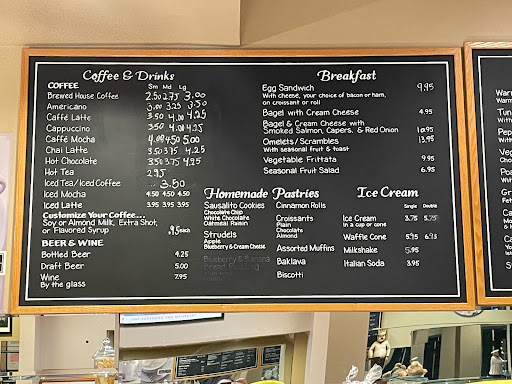 Coffee & Drinks
COFFEE Sm Md Lg
Brewed House Coffee 2.50 2.75 3.00
Americano 3.00 3.25 3.50
Caffé Latte 3.50 4.00 4.25
Cappuccino 3.50 4.00 4.25
Caffé Mocha 4.00 4.50 5.00
Chai Latte 3.50 3.75 4.25
Hot Chocolate 3.50 3.75 4.25
Hot Tea 2.95
Iced Tea/Iced Coffee 3.50
Iced Mocha 4.50 4.50 4.50
Iced Latte 3.95 3.95 3.95
Customize Your Coffee...
Soy or Almond Milk, Extra Shot,
or Flavored Syrup .95 each
BEER & WINE
Bottled Beer 4.25
Draft Beer 5.00
Wine 7.95
By the glass
Breakfast
Egg Sandwich 9.95
With cheese, your choice of bacon or ham,
on croissant or roll
Bagel with Cream Cheese 4.95
Bagel & Cream Cheese with
Smoked Salmon, Capers, & Red Onion 10.95
Omelets / Scrambles 13.95
With seasonal fruit & toast
Vegetable Frittata 9.95
Seasonal Fruit Salad 6.95
Homemade Pastries
Sausalito Cookies
Chocolate Chip
White Chocolate
Oatmeal Raisin
Strudels
Apple
Blueberry & Cream Cheese
Blueberry & Banana
Bread Pudding
Cinnamon Rolls
Croissants
Plain
Chocolate
Almond
Assorted Muffins
Baklava
Biscotti
Ice Cream
Single Double
Ice Cream 3.75 5.75
In a cup or cone
Waffle Cone 5.95 6.95
Milkshake 5.95
Italian Soda 3.95